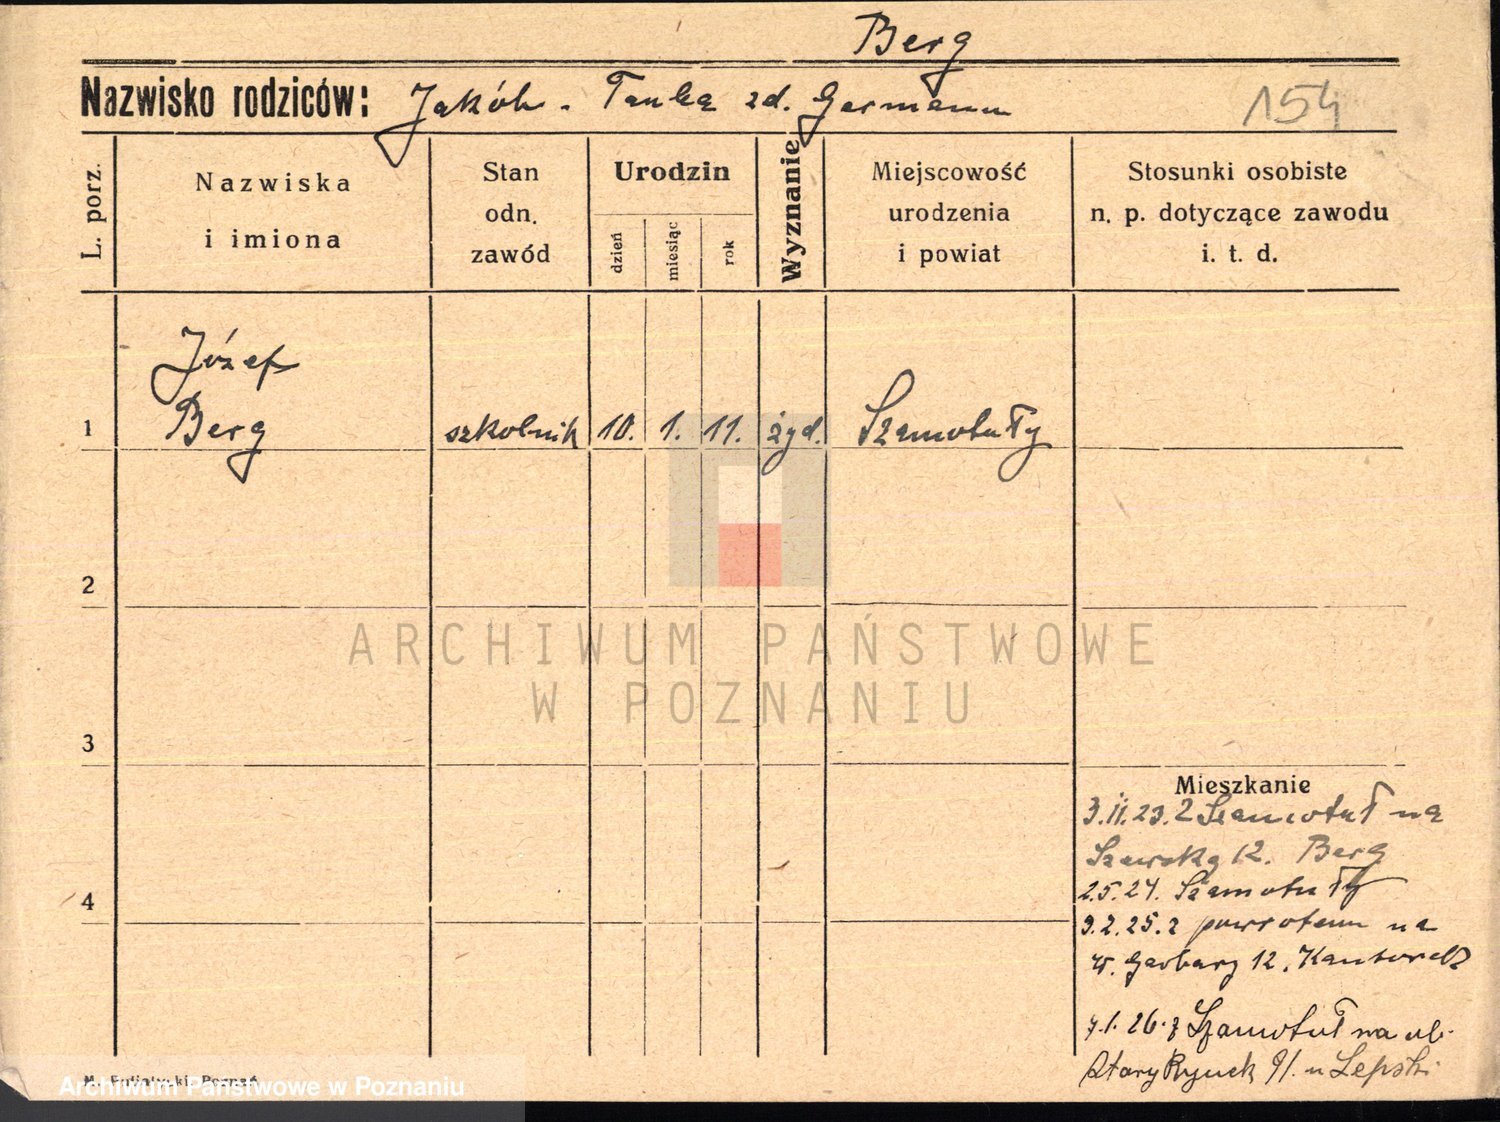 Berg
Nazwisko rodziców: Jakób - Tauba zd. Germann
154
L. porz.
Nazwiska
i imiona
Stan
odn.
zawód
Urodzin
dzień
miesiąc
rok
Wyznanie
Miejscowość
urodzenia
i powiat
Stosunki osobiste
n. p. dotyczące zawodu
i. t. d.
Józef
1 Berg szkolnik 10. 1. 11. żyd. Szamotuły
2
3
4
Mieszkanie
3.11.23. z Szamotuł na
Szewską 12. Berg
2.5.24. Szamotuły
9.2.25. z powrotem na
W. Garbary 12,
7.1.26. z Szamotuł na ul.
Stary Rynek 91. u Lepski
ARCHIWUM PAŃSTWOWE
W POZNANIU
Archiwum Państwowe w Poznaniu